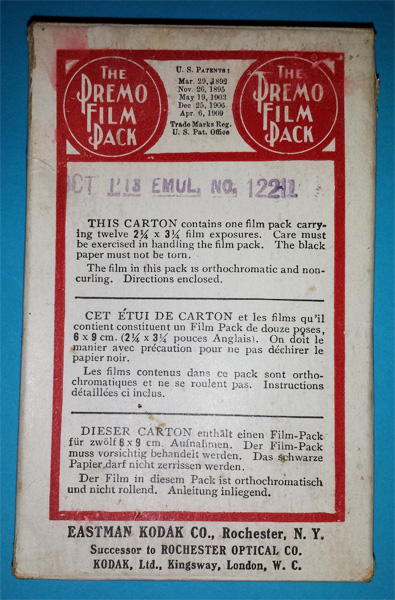 THE
PREMO
FILM
PACK
U. S. PATENTS:
Mar. 29, 1892
Nov. 26, 1895
May 19, 1903
Dec 25, 1906
Apr. 6, 1909
Trade Marks Reg.
U. S. Pat. Office
THE
PREMO
FILM
PACK
EMUL. NO.
THIS CARTON contains one film pack carry-
ing twelve 2¼ x 3¼ film exposures. Care must
be exercised in handling the film pack. The black
paper must not be torn.
The film in this pack is orthochromatic and non-
curling. Directions enclosed.
CET ÉTUI DE CARTON et les films qu'il
contient constituent un Film Pack de douze poses,
6 x 9 cm. (2¼ x 3¼ pouces Anglais). On doit le
manier avec précaution pour ne pas déchirer le
papier noir.
Les films contenus dans ce pack sont ortho-
chromatiques et ne se roulent pas. Instructions
détaillées ci inclus.
DIESER CARTON enthält einen Film-Pack
für zwölf 6 x 9 cm. Aufnahmen. Der Film-Pack
muss vorsichtig behandelt werden. Das schwarze
Papier darf nicht zerrissen werden.
Der Film in diesem Pack ist orthochromatisch
und nicht rollend. Anleitung inliegend.
EASTMAN KODAK CO., Rochester, N. Y.
Successor to ROCHESTER OPTICAL CO.
KODAK, Ltd., Kingsway, London, W. C.